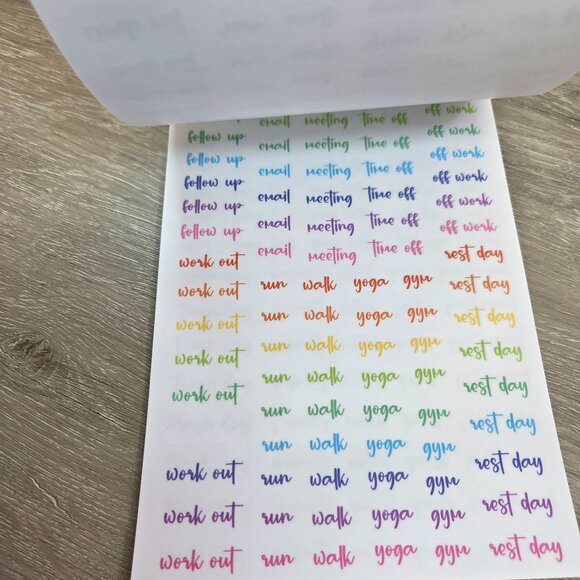 email meeting time off off work
follow up email meeting time off off work
follow up email meeting time off off work
follow up email meeting time off off work
follow up email meeting time off off work
follow up email meeting time off off work
work out run walk yoga gym rest day
work out run walk yoga gym rest day
work out run walk yoga gym rest day
work out run walk yoga gym rest day
work out run walk yoga gym rest day
run walk yoga gym rest day
work out run walk yoga gym rest day
work out run walk yoga gym rest day
work out run walk yoga gym rest day